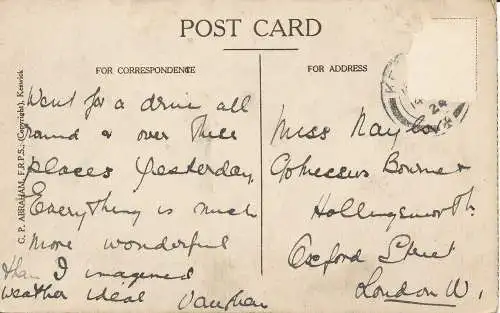 POST CARD
FOR CORRESPONDENCE
Went for a drive all
round & over these
places yesterday.
Everything is much
more wonderful
than I imagined
weather ideal Vaughan
FOR ADDRESS
Miss Naylor
Bourne &
Hollingsworth
Oxford Street
London W.
G. P. ABRAHAM, F.R.P.S., (Copyright), Keswick